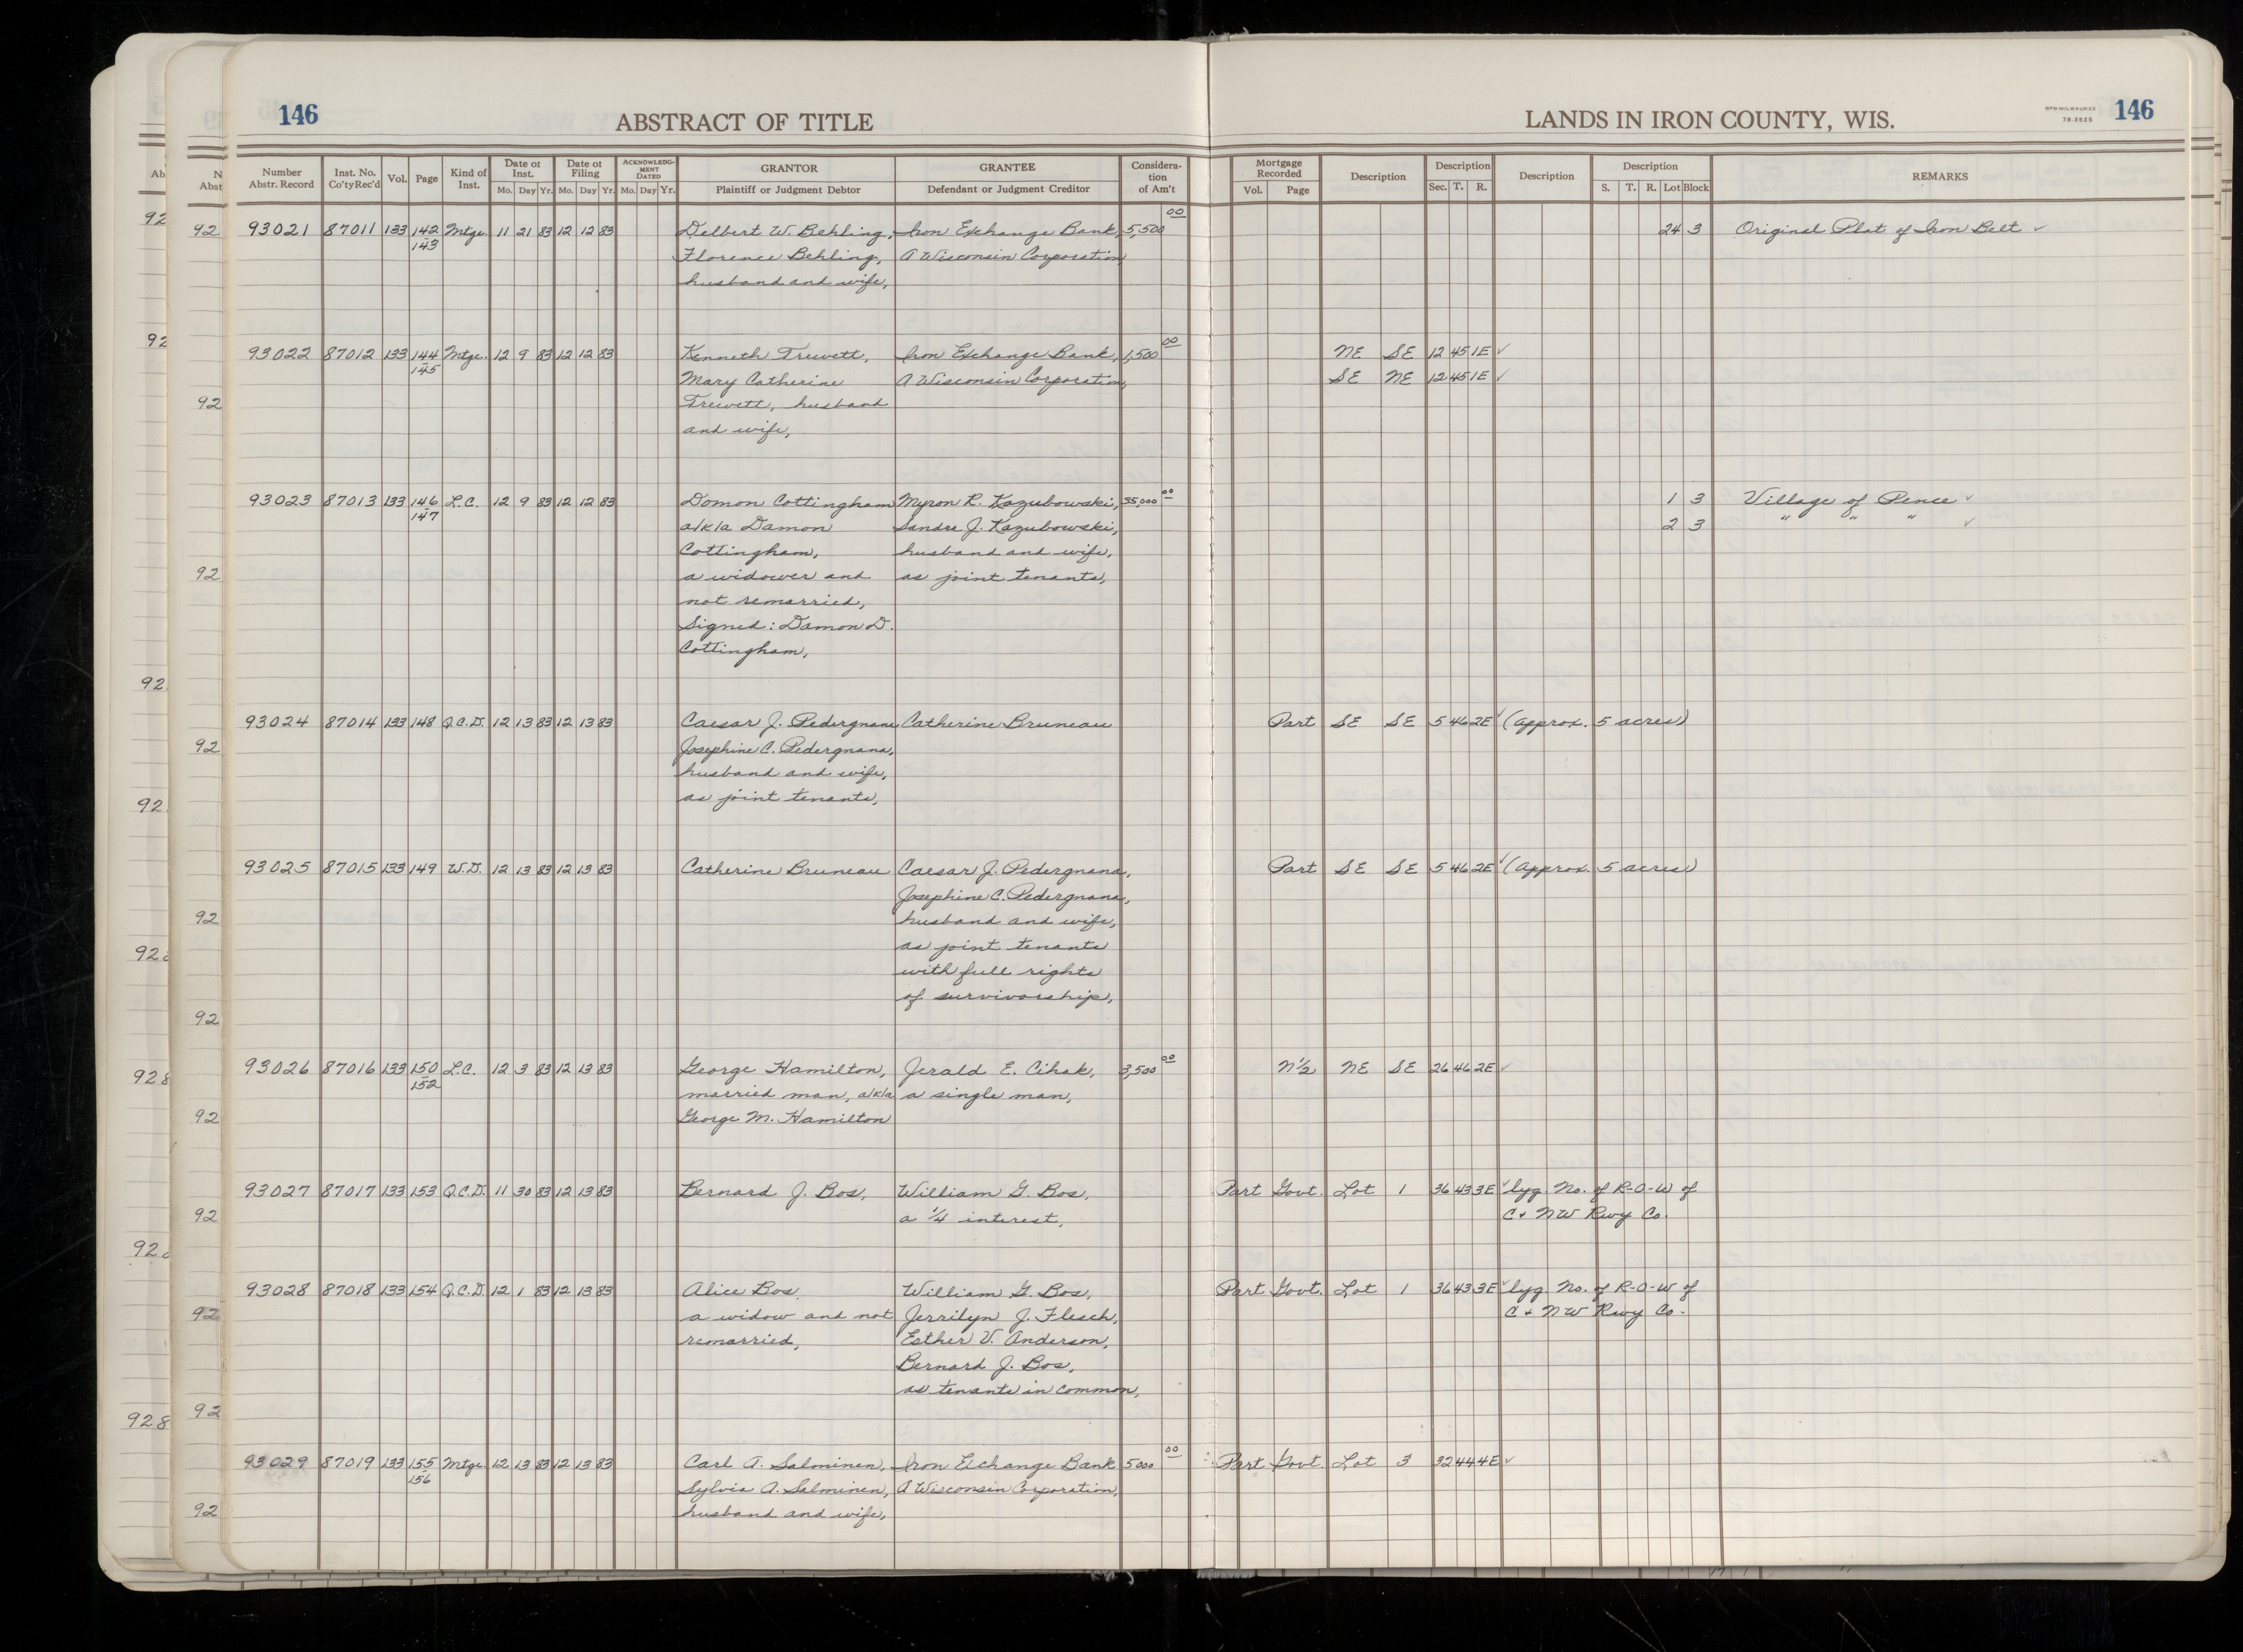 146 ABSTRACT OF TITLE LANDS IN IRON COUNTY, WIS. 146
Number Abstr. Record Inst. No. Co'ty Rec'd Vol. Page Kind of Inst. Date of Inst. Mo. Day Yr. Date of Filing Mo. Day Yr. ACKNOWLEDGMENT DATED Mo. Day Yr. GRANTOR Plaintiff or Judgment Debtor GRANTEE Defendant or Judgment Creditor Consideration of Am't Mortgage Recorded Vol. Page Description Description Sec. T. R. Description Description S. T. R. Lot Block REMARKS
93021 87011 133 142 Mtge. 11 21 83 12 12 83 Delbert W. Behling, Iron Exchange Bank, 5,500 00 24 3 Original Plat of Iron Belt ✓
143 Florence Behling, A Wisconsin Corporation
husband and wife,
93022 87012 133 144 Mtge. 12 9 83 12 12 83 Kenneth Trewett, Iron Exchange Bank, 1,500 00 NE SE 12 45 1E ✓
145 Mary Catherine A Wisconsin Corporation, SE NE 12 45 1E ✓
Trewett, husband
and wife,
93023 87013 133 146 L.C. 12 9 83 12 12 83 Domon Cottingham Myron R. Kazubowski, 35,000 00 1 3 Village of Pence ✓
147 a/k/a Damon Sandra J. Kazubowski, 2 3 " " " ✓
Cottingham, husband and wife,
a widower and as joint tenants,
not remarried,
Signed: Damon D.
Cottingham,
93024 87014 133 148 Q.C.D. 12 13 83 12 13 83 Caesar J. Pedergnana Catherine Bruneau Part SE SE 5 46 2E ✓ (approx. 5 acres)
Josephine C. Pedergnana,
husband and wife,
as joint tenants,
93025 87015 133 149 W.D. 12 13 83 12 13 83 Catherine Bruneau Caesar J. Pedergnana, Part SE SE 5 46 2E ✓ (approx. 5 acres)
Josephine C. Pedergnana,
husband and wife,
as joint tenants
with full rights
of survivorship,
93026 87016 133 150 L.C. 12 3 83 12 13 83 George Hamilton, Jerald E. Cihak, 3,500 00 N½ NE SE 26 46 2E ✓
152 married man, a/k/a a single man,
George M. Hamilton
93027 87017 133 153 Q.C.D. 11 30 83 12 13 83 Bernard J. Bos, William G. Bos, Part Govt. Lot 1 36 43 3E ✓ lyg. No. of R-O-W of
a ¼ interest, C + NW Rwy Co.
93028 87018 133 154 Q.C.D. 12 1 83 12 13 83 Alice Bos, William G. Bos, Part Govt. Lot 1 36 43 3E ✓ lyg. No. of R-O-W of
a widow and not Jerrilyn J. Flesch, C + NW Rwy Co.
remarried, Esther V. Anderson,
Bernard J. Bos,
as tenants in common,
93029 87019 133 155 Mtge. 12 13 83 12 13 83 Carl A. Salminen, Iron Exchange Bank 5000 00 Part Govt. Lot 3 32 44 4E ✓
156 Sylvia A. Salminen, A Wisconsin Corporation,
husband and wife,